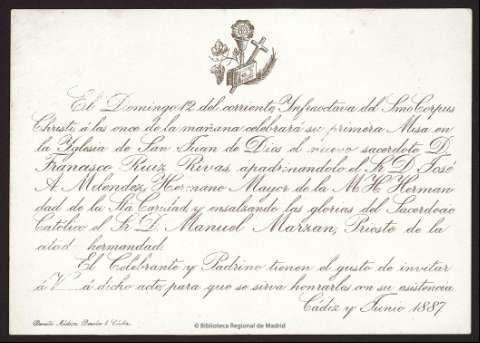 El Domingo 12 del corriente, Infraoctava del Smo Corpus
Christi á las once de la mañana celebrará su primera Misa en
la Yglesia de San Juan de Dios el nuevo sacerdote D.
Francisco Ruiz Rivas, apadrinandolo el Sr D. José
A. Melendez, Hermano Mayor de la M. H. Herman
dad de la Sta Caridad y ensalzando las glorias del Sacerdocio
Católico el Sr D. Manuel Marzan, Prioste de la
citad hermandad.
El Celebrante y Padrino tienen el gusto de invitar
á V á dicho acto, para que se sirva honrarles con su asistencia
Cádiz y Junio 1887
© Biblioteca Regional de Madrid